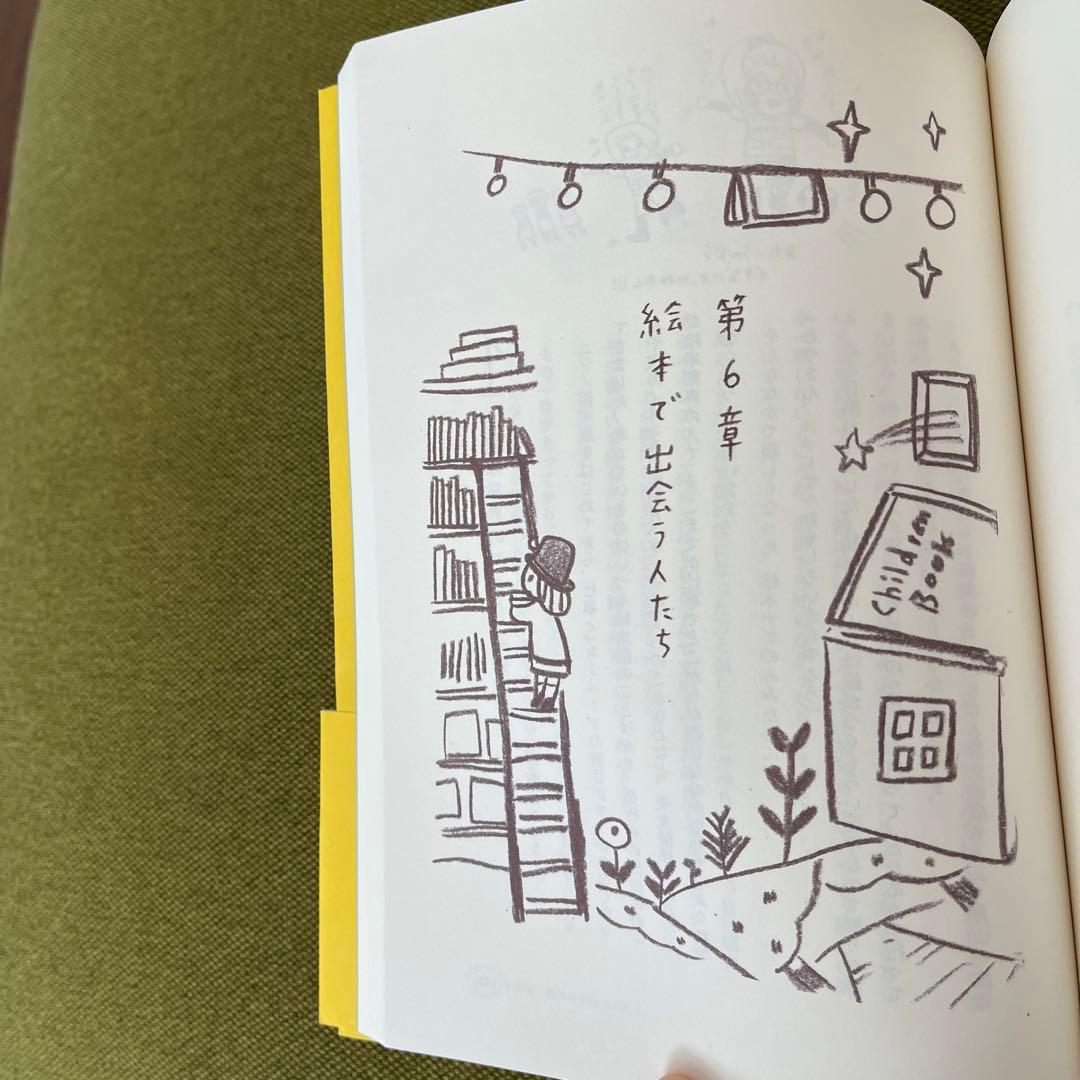 第6章
絵本で出会う人たち
Children
Book